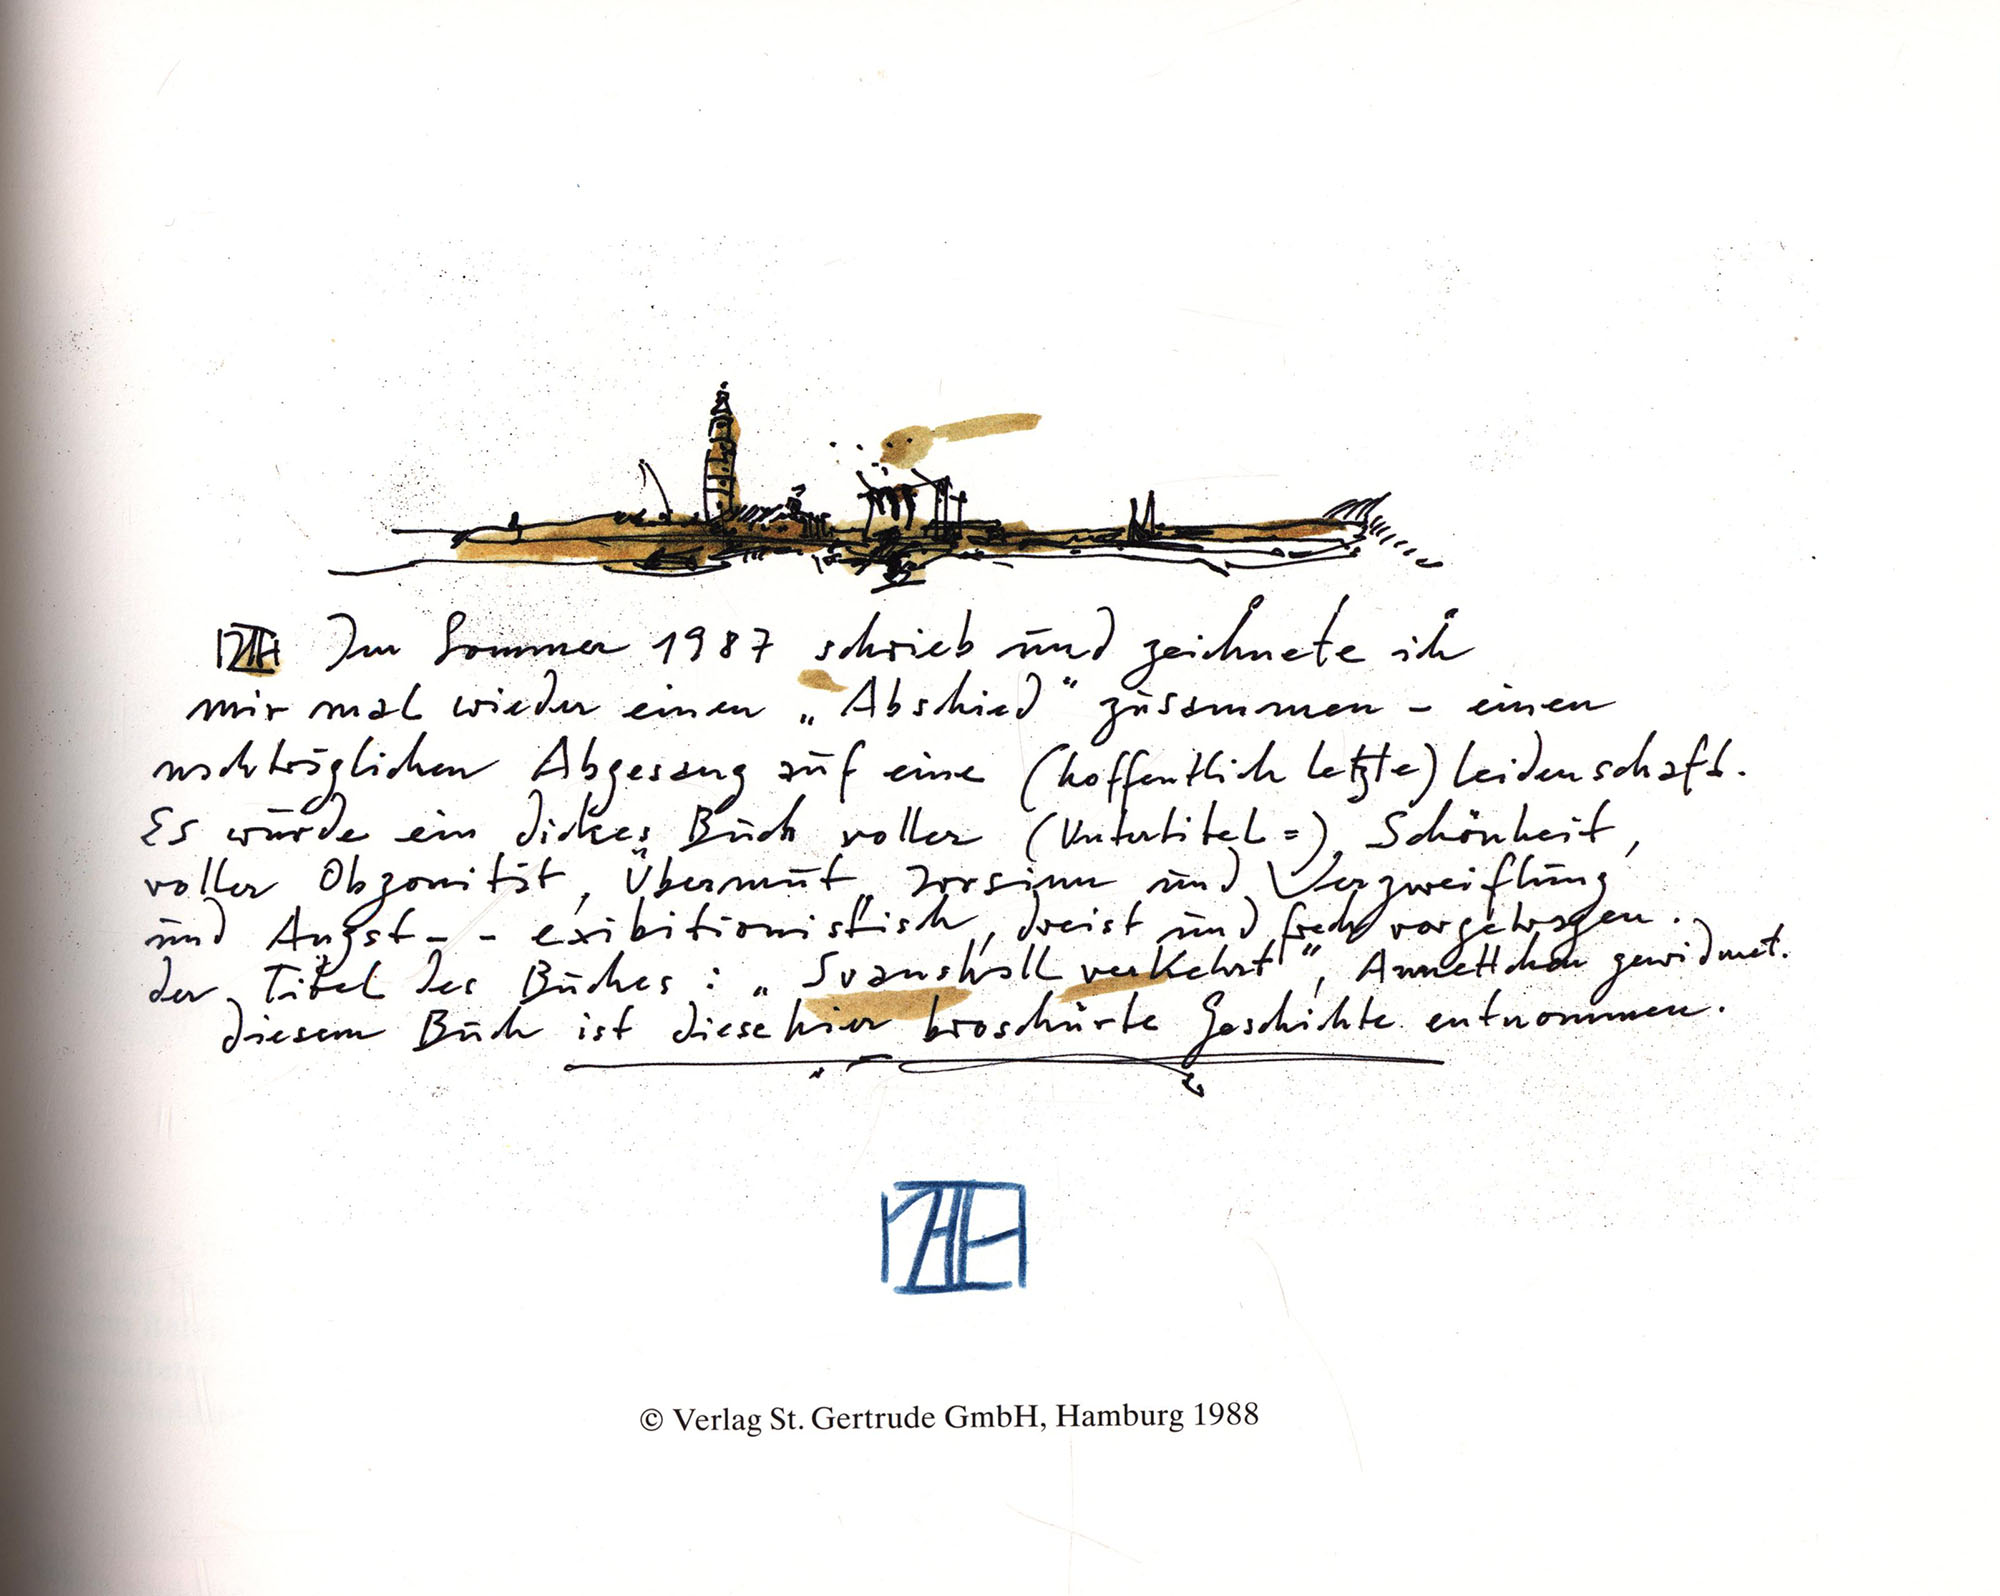 Im Sommer 1987 schrieb und zeichnete ich
mir mal wieder einen „Abschied" zusammen – einen
nachträglichen Abgesang auf eine (hoffentlich letzte) Leidenschaft.
Es wurde ein dickes Buch voller (Untertitel =) Schönheit,
voller Obzönität, Übermut, Irrsinn und Verzweiflung
und Angst – – exibitionistisch, dreist und frech vorgetragen.
der Titel des Buches: „Svanshall verkehrt", Annettchen gewidmet.
diesem Buch ist diese hier broschürte Geschichte entnommen.
© Verlag St. Gertrude GmbH, Hamburg 1988